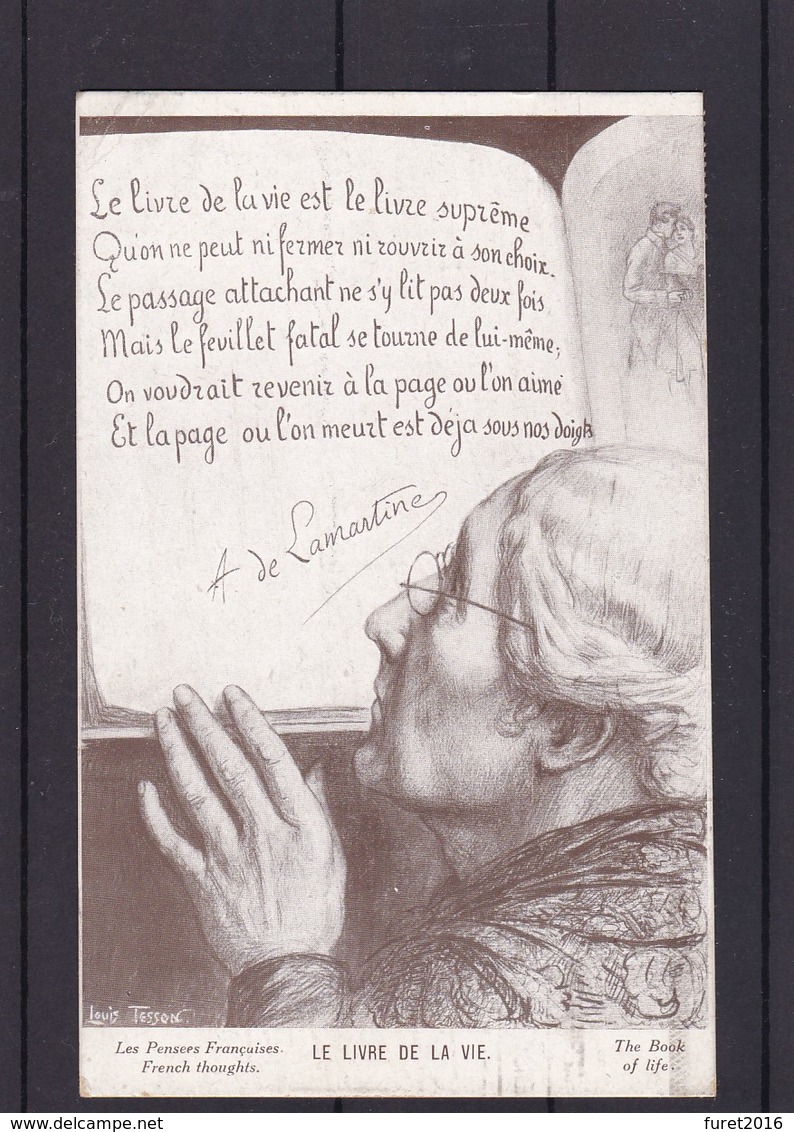 Le livre de la vie est le livre suprême
Qu'on ne peut ni fermer ni rouvrir à son choix.
Le passage attachant ne s'y lit pas deux fois
Mais le feuillet fatal se tourne de lui-même;
On voudrait revenir à la page ou l'on aime
Et la page ou l'on meurt est déja sous nos doigts
A. de Lamartine
Louis Tesson
Les Pensees Françuises. LE LIVRE DE LA VIE. The Book
French thoughts. of life.
delcampe.net
furet2016